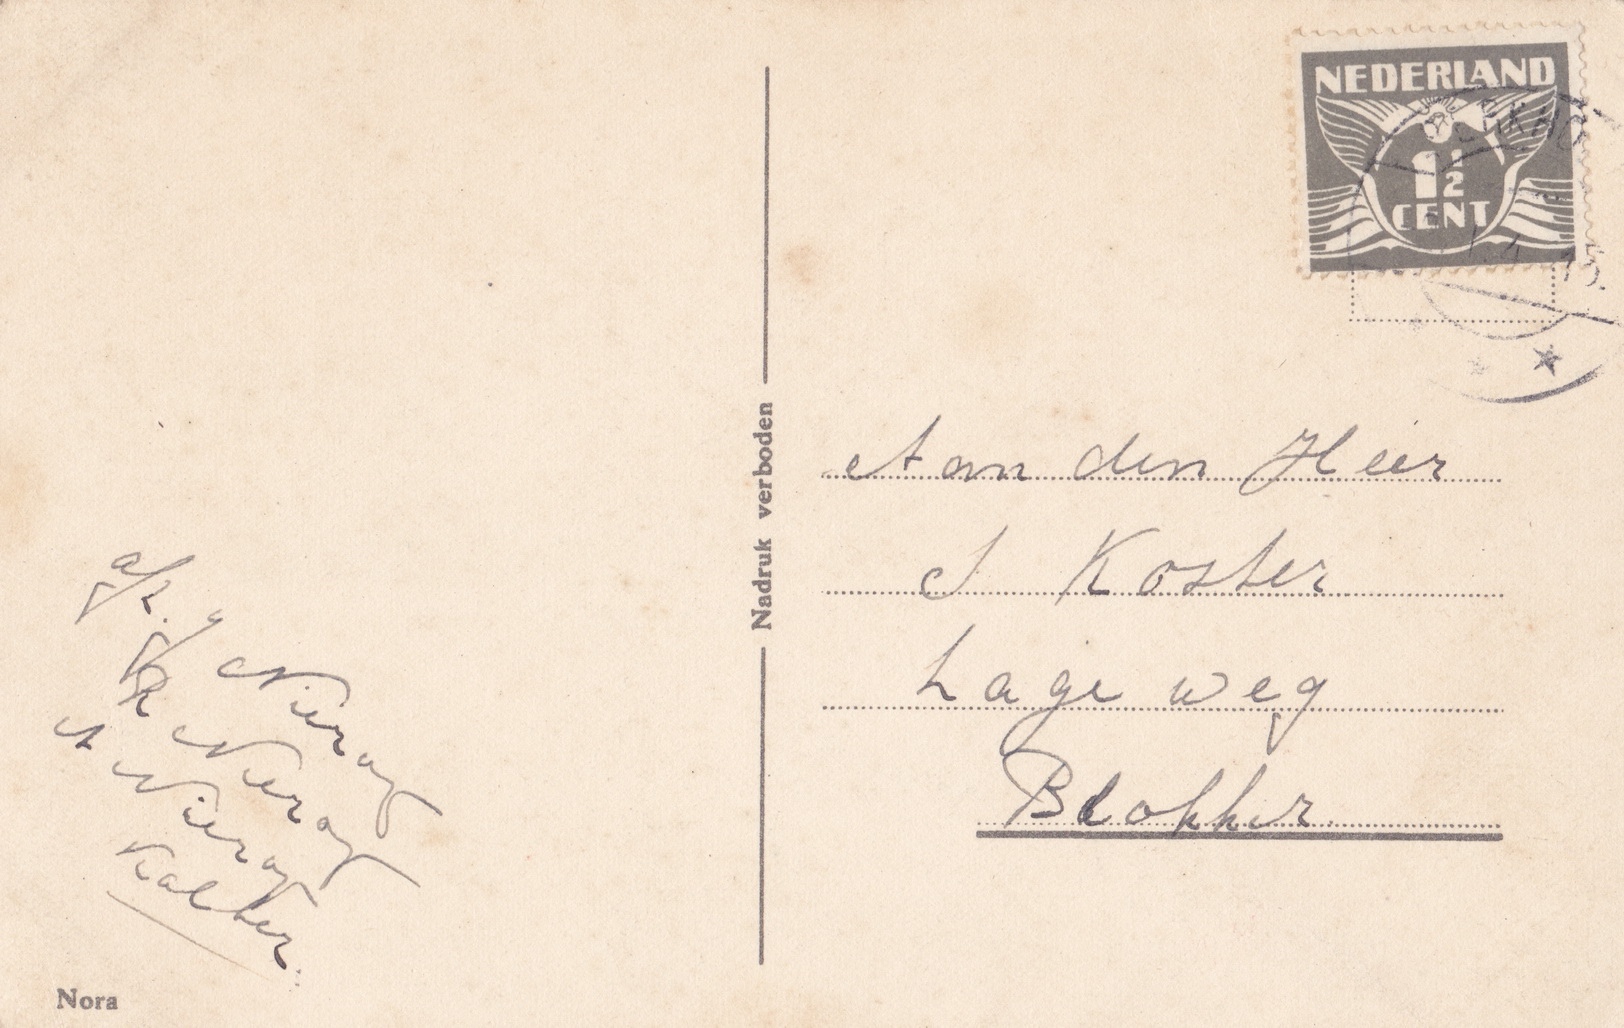 NEDERLAND
1½
CENT
Nadruk verboden
Aan den Heer
J Koster
Lage weg
Blokker
a/z.
J Nierop
K Nierop
A Nierop
Kalter
Nora